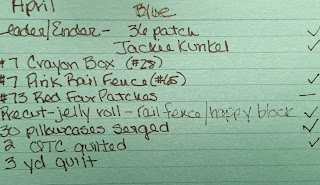 April
Blue
Leader/Ender- 36 patch
Jackie Kunkel ✓
#7 Crayon Box (#28)
#7 Pink Rail Fence (#65) ✓
#73 Red Four Patches —
Precut-jelly roll-rail fence/happy block ✓
30 pillowcases serged ✓
2 QOTC quilted ✓
3 yd quilt ✓